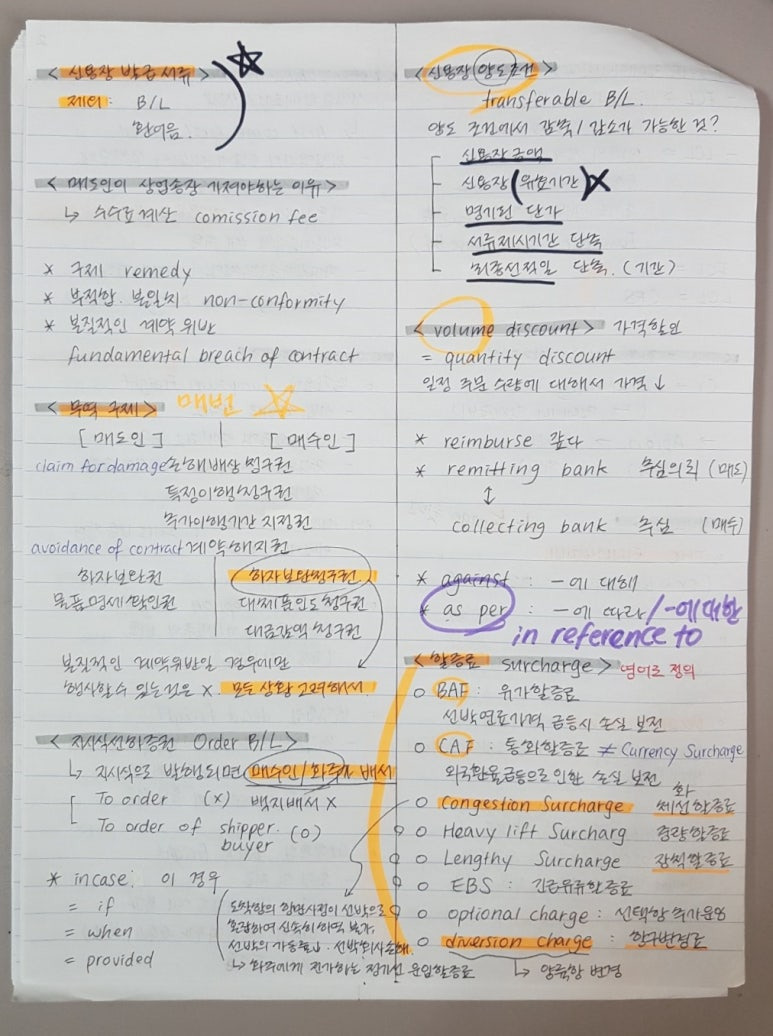 < 신용장 발급 서류 >
제외: B/L
환어음.
< 매도인이 상업송장 가져야하는 이유 >
↳ 수수료계산 comission fee
* 구제 remedy
* 부적합. 불일치 non-conformity
* 본질적인 계약 위반
fundamental breach of contract
< 무역 구제 > 매번 ☆
[ 매도인 ] [ 매수인 ]
claim for damage 손해배상 청구권
특정이행청구권
추가이행기간 지정권
avoidance of contract 계약해지권
하자보완권 하자보완청구권.
물품명세확인권 대체품인도청구권
대금감액 청구권
본질적인 계약위반일 경우에만
행사할수 있는것은 X. 모두 상황 고려해서.
< 지시식선하증권 Order B/L >
↳ 지시식으로 발행되면 매수인/화주가 배서
To order (x) 백지배서 X
To order of shipper. (o)
buyer
* incase: 이 경우
= if
= when
= provided
도착항의 항만사정이 선박으로
혼잡하여 신속히 하역 불가.
선박의 가동률↓. 선박회사손해.
↳ 화주에게 전가하는 정기선 운임할증료
< 신용장 양도조건 >
transferable B/L.
양도 조건에서 감액/감소가 가능한 것?
신용장금액
신용장 (유효기간) X
명기된 단가
서류제시기간 단축
최종선적일 단축. (기간)
< volume discount > 가격할인
= quantity discount
일정 주문 수량에 대해서 가격↓
* reimburse 갚다
* remitting bank 추심의뢰 (매도)
↕
collecting bank 추심 (매수)
* against : -에 대해
* as per : -에 따라/-에 대한
in reference to
< 할증료 surcharge > 영어로 정의
○ BAF : 유가할증료
선박연료가격 급등시 손실 보전
○ CAF : 통화할증료 ≠ Currency Surcharge
외국환율급등으로 인한 손실 보전
○ Congestion Surcharge 체선할증료
화
○ Heavy lift Surcharg 중량할증료
○ Lengthy Surcharge 장척할증료
○ EBS : 긴급유류할증료
○ optional charge : 선택항 추가운임
○ diversion charge : 항구변경료
↳ 양륙항 변경